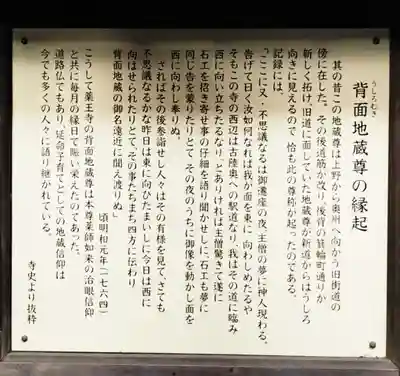 うしろむき
背面地蔵尊の縁起
其の昔この地蔵尊は上野から奥州へ向かう旧街道の
傍に在した。その後道筋が改り、後背の箕輪町通りが
新しく拓け、旧道に面していた地蔵尊が新道からはうしろ
向きに見えるので 恰も此の尊称が起ったのである。
記録には、
「ここに又・不思議なるは御遷座の夜、主僧の夢に神人現わる。
告げて曰く、汝如何なれば我が面を東に 向わしめたるや
そもこの寺の西辺は古陸奥への駅道なり、我はその道に臨み
西に向い立ちたるなり、とありければ主僧驚きて遂に
石工を招き寄せ事の仔細を語り聞かせしに、石工も夢に
同じ告を蒙りたりとて その夜のうちに御像を動かし面を
西に向わし奉りぬ。
さればその後参詣せし人々はその有様を見て、さても
不思議なるかな昨日は東に向ひたまいしに今日は西に
向はせられたりとて、その事たちまち四方に伝わり
背面地蔵の御名遠近に聞え渡りぬ」
頃明和元年(一七六四)
こうして薬王寺の背面地蔵尊は本尊薬師如来の治眼信仰
と共に毎月の縁日で賑い栄えたのであった。
道路仏でもあり、延命子育てとしての地蔵信仰は
今でも多くの人々に語り継がれている。
寺史より抜粋